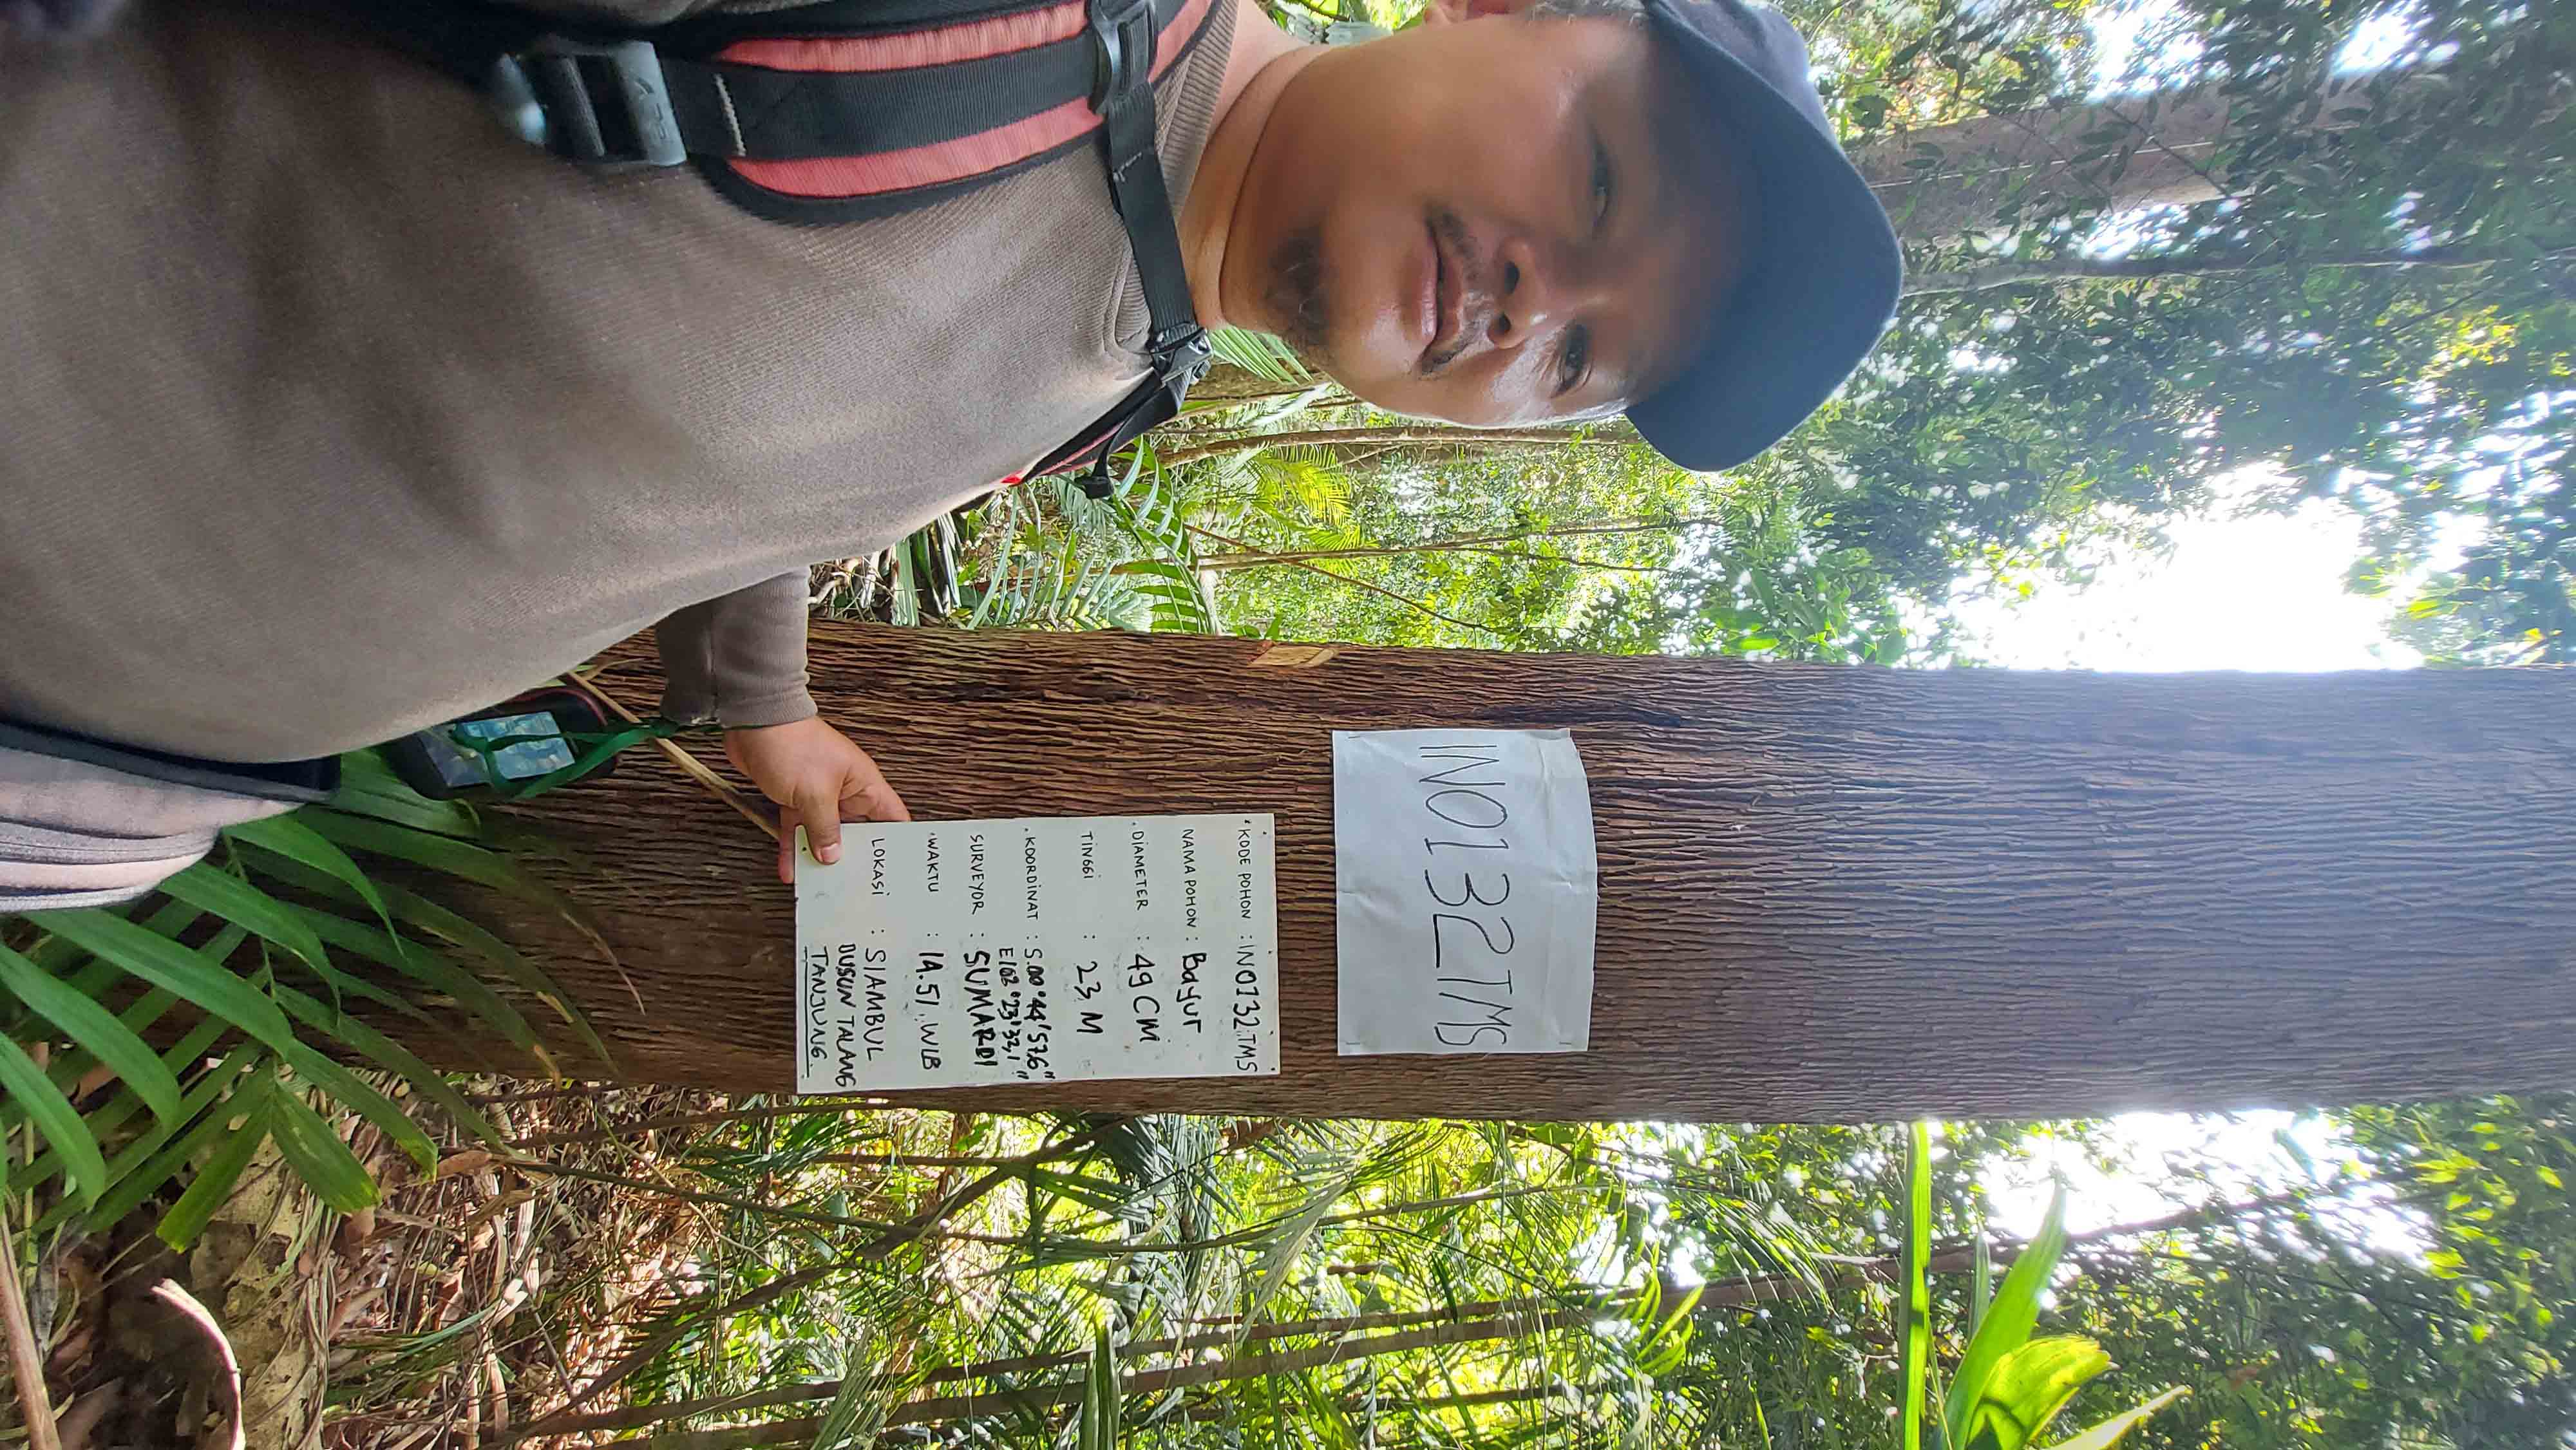 INO132TMS
KODE POHON : INO132.TMS
NAMA POHON : Bayur
DIAMETER : 49 CM
TINGGI : 23 M
KOORDINAT : S.00°44'57.6"
E102°23'33,1"
SURVEYOR : SUMARDI
WAKTU : 14.51. WIB
LOKASI : SIAMBUL
DUSUN TALANG
TANJUNG.